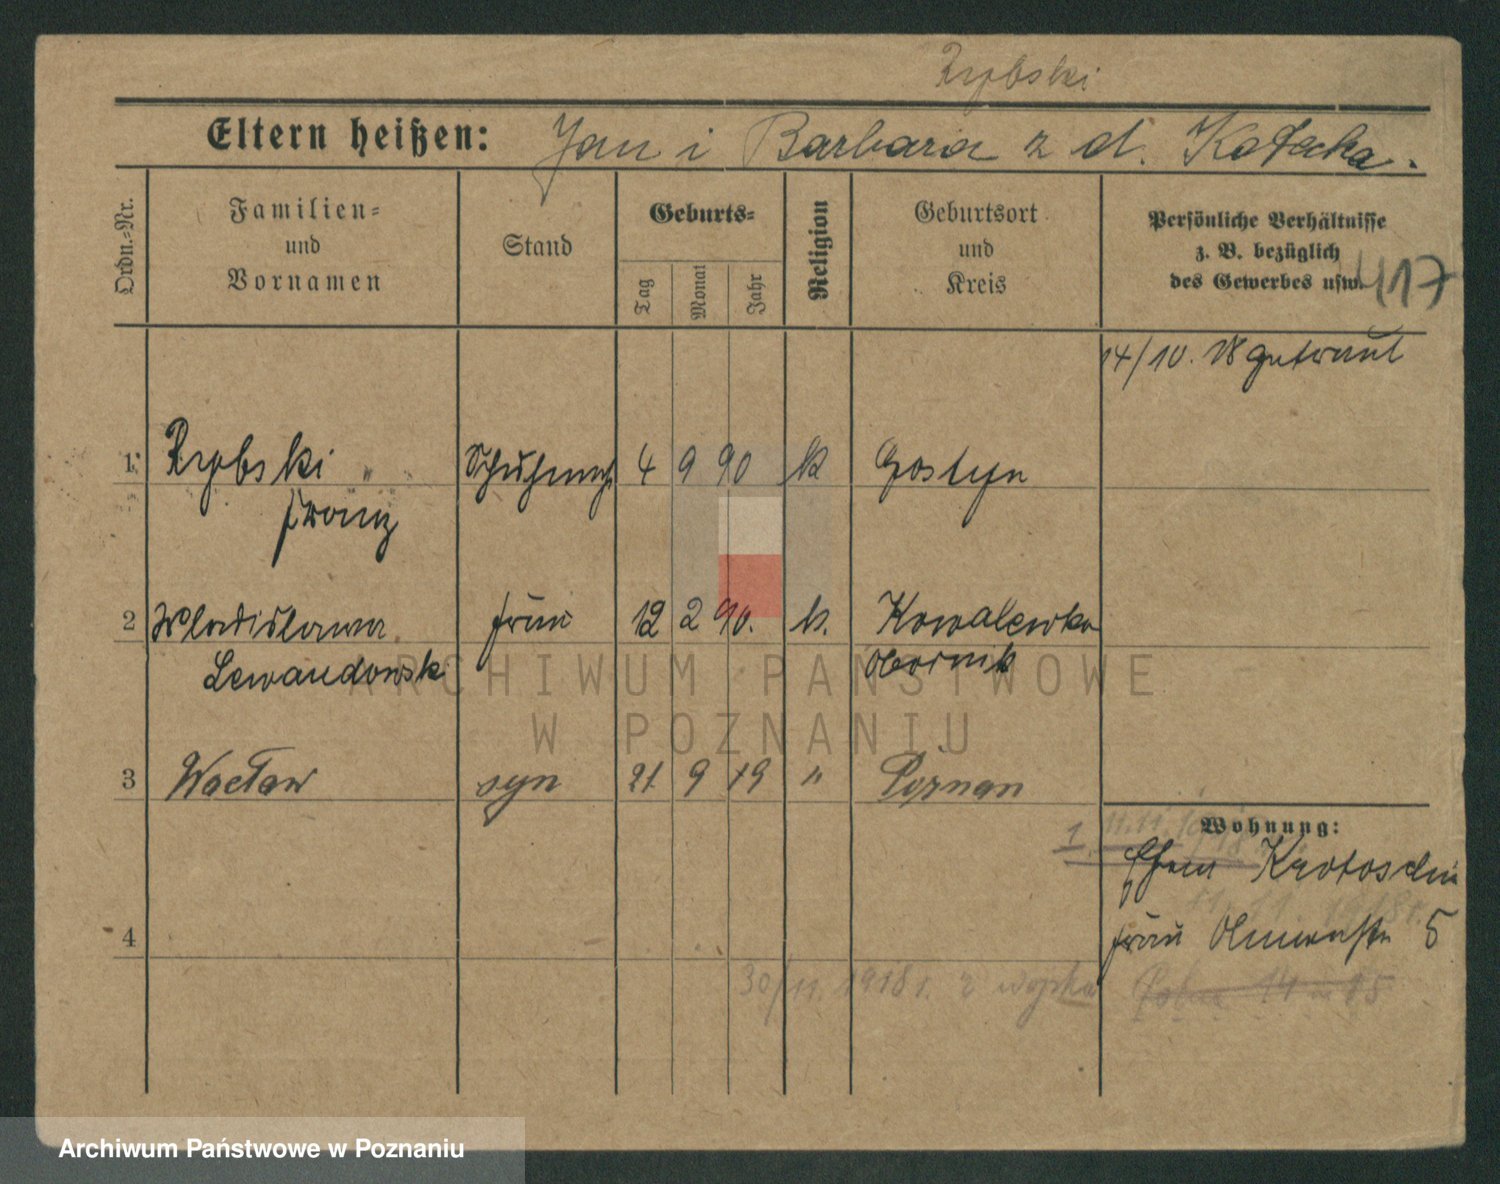 Rybski
Eltern heißen: Jan i Barbara z d. Kotecka.
Ordn.-Nr.
Familien-
und
Vornamen
Stand
Geburts-
Tag
Monat
Jahr
Religion
Geburtsort
und
Kreis
Persönliche Verhältnisse
z. B. bezüglich
des Gewerbes usw.
417
14/10. 18 getraut
1 Rybski Schuhmach 4 9 90 k Gostyn
Franz
2 Wladislawa frau 12 2 90. k. Kowalewko
Lewandowsk Obornik
3 Wacław syn 21 9 19 " Poznan
Wohnung:
1. 11.11.
Ehem Krotoschin
11. 11. 1918 r.
4
frau 5
30/11. 1918 r. z wojska
14 m 15
ARCHIWUM PAŃSTWOWE
W POZNANIU
Archiwum Państwowe w Poznaniu